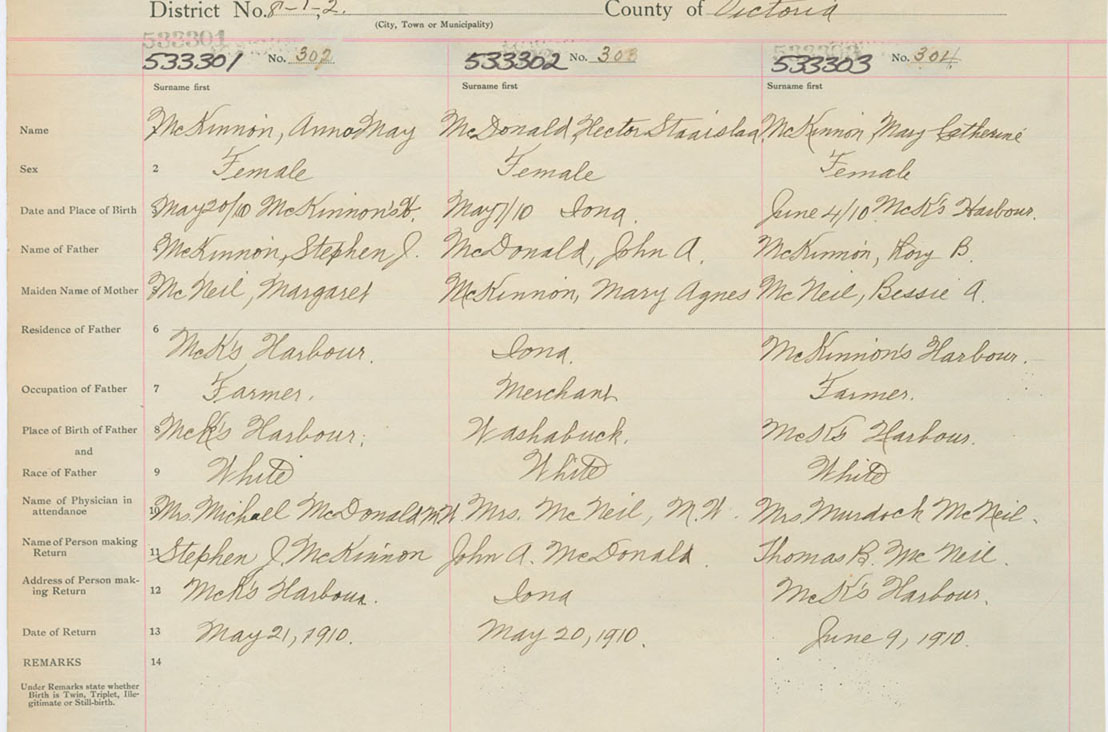 District No. 8-1-2. County of Victoria
(City, Town or Municipality)
533301 No. 302 533302 No. 303 533303 No. 304
Surname first Surname first Surname first
Name McKinnon, Anna May McDonald, Hector Stanislaus McKinnon, Mary Catherine
Sex 2 Female Female Female
Date and Place of Birth 3 May 20/10 McKinnon's H. May 7/10 Iona. June 4/10 McK's Harbour.
Name of Father McKinnon, Stephen J. McDonald, John A. McKinnon, Rory B.
Maiden Name of Mother McNeil, Margaret McKinnon, Mary Agnes McNeil, Bessie A.
Residence of Father 6
McK's Harbour. Iona. McKinnon's Harbour.
Occupation of Father 7 Farmer. Merchant Farmer.
Place of Birth of Father 8 McK's Harbour. Washabuck. McK's Harbour.
and
Race of Father 9 White White White
Name of Physician in
attendance 10 Mrs. Michael McDonald M.W. Mrs. McNeil, M.W. Mrs Murdock McNeil.
Name of Person making
Return 11 Stephen J. McKinnon John A. McDonald. Thomas B. McNeil.
Address of Person mak-
ing Return 12 McK's Harbour. Iona McK's Harbour.
Date of Return 13 May 21, 1910. May 20, 1910. June 9, 1910.
REMARKS 14
Under Remarks state whether
Birth is Twin, Triplet, Ille-
gitimate or Still-birth.